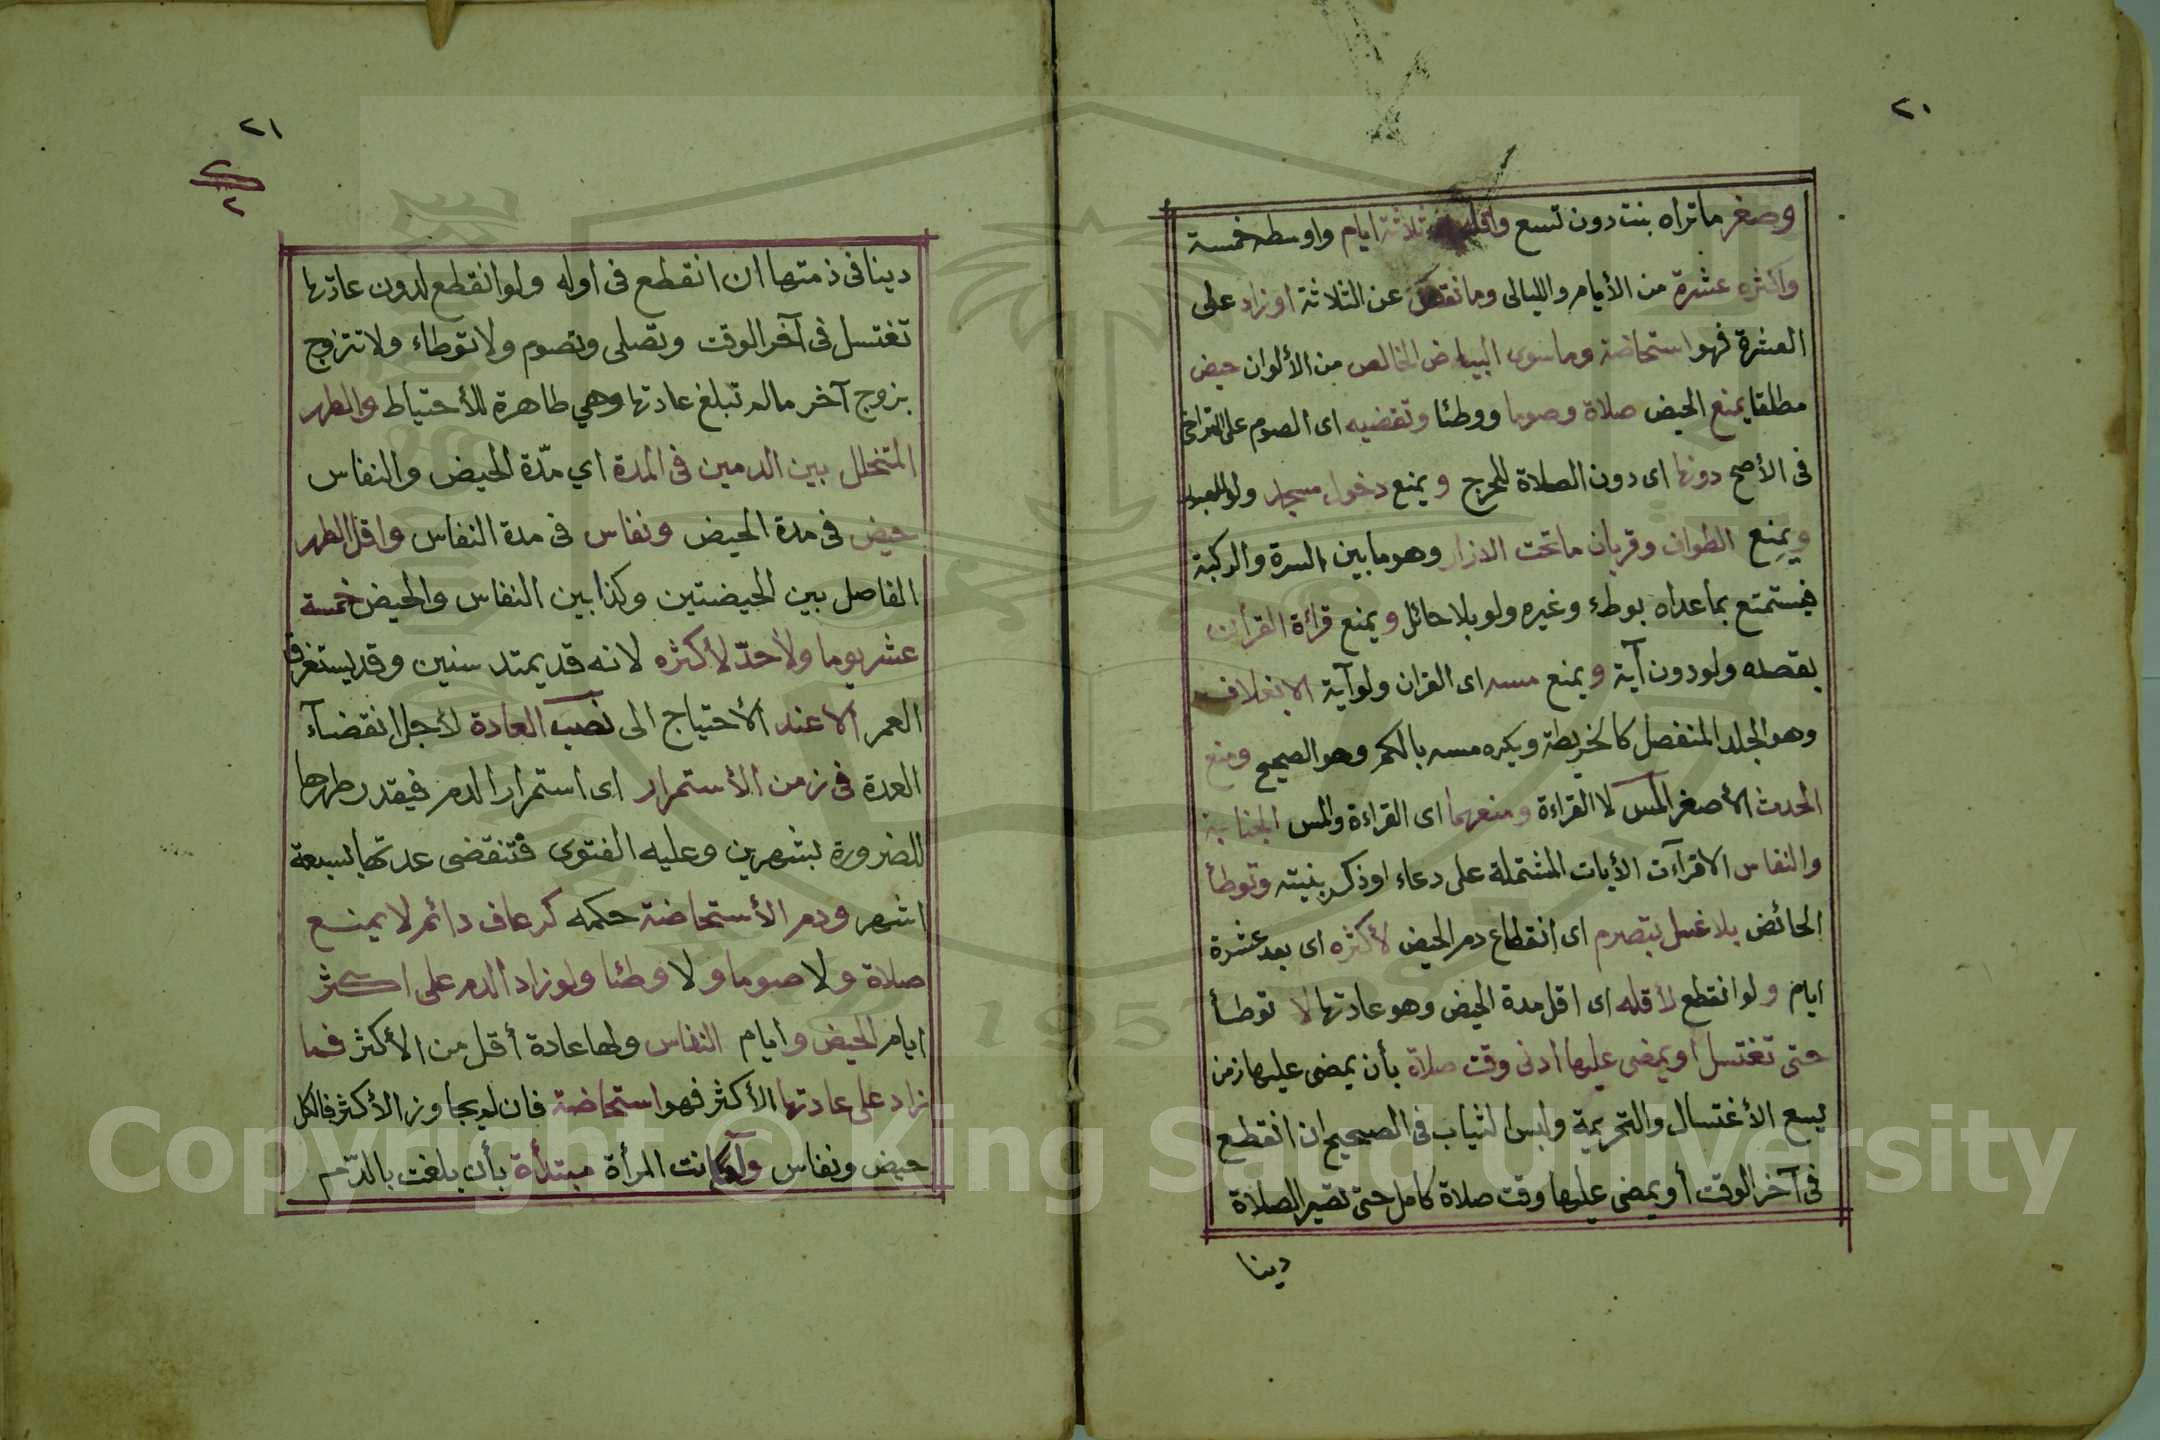 ٢٠
وصغر ماتراه بنت دون تسع واقله ثلاثة ايام واوسطه خمسة
واكثره عشرة من الأيام والليالى وما نقص عن الثلاثة اوزاد على
العشرة فهو استحاضة وما سوى البياض الخالص من الألوان حيض
مطلقا يمنع الحيض صلاة وصوما ووطئا وتقضيه اى الصوم على التراخى
فى الأصح دونها اى دون الصلاة للحرج ويمنع دخول مسجد ولو للعبور
ويمنع الطواف وقربان ماتحت الازار وهو ما بين السرة والركبة
فيستمتع بماعداه بوطء وغيره ولو بلا حائل ويمنع قرأة القرأن
بقصده ولو دون آية ويمنع مسه اى القران ولو آية الا بغلاف
وهو الجلد المنفصل كالخريطة ويكره مسه بالكم وهو الصحيح ومنع
الحدث الأصغر المس لا القراءة ومنعهما اى القراءة والمس الجنابة
والنفاس الا قرآءت الأيات المشتملة على دعاء اوذكر بنيته وتوطأ
الحائض بلا غسل بتصرم اى انقطاع دم الحيض لأكثره اى بعد عشرة
ايام ولو انقطع لأقله اى اقل مدة الحيض وهو عادتها لا توطأ
حتى تغتسل او يمضى عليها ادنى وقت صلاة بأن يمضى عليها زمن
يسع الأغتسال والتحريمة ولبس الثياب فى الصحيح ان انقطع
فى آخر الوقت أو يمضى عليها وقت صلاة كامل حتى تصير الصلاة
دينا
٢١
٢
٢
دينا فى ذمتها ان انقطع فى اوله ولو انقطع لدون عادتها
تغتسل فى آخر الوقت وتصلى وتصوم ولا توطاء ولا تتزوج
بزوج آخر مالم تبلغ عادتها وهي طاهرة للأحتياط والطهر
المتخلل بين الدمين فى المدة اي مدّة الحيض والنفاس
حيض فى مدة الحيض ونفاس فى مدة النفاس واقل الطهر
الفاصل بين الحيضتين وكذا بين النفاس والحيض خمسة
عشر يوما ولا حدّ لأكثره لانه قد يمتد سنين وقد يستغرق
العمر ألا عند الأحتياج الى نصب العادة لأجل انقضآء
العدة فى زمن الأستمرار اى استمرار الدم فيقدر طهرها
للضرورة بشهرين وعليه الفتوى فتنقضى عدتها بسبعة
اشهر ودم الأستحاضة حكمه كرعاف دائم لا يمنع
صلاة ولا صوما ولا وطئا ولو زاد الدم على اكثر
ايام الحيض وايام النفاس ولها عادة أقل من الأكثر فما
زاد على عادتها الأكثر فهو استحاضة فان لم يجاوز الأكثر فالكل
حيض ونفاس ولو كانت المرأة مبتدأة بأن بلغت بالدّم
Copyright © King Saud University
1957